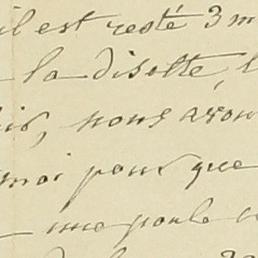 il est resté 3 m
la disette, l
nous avon
moi pour que
une poule